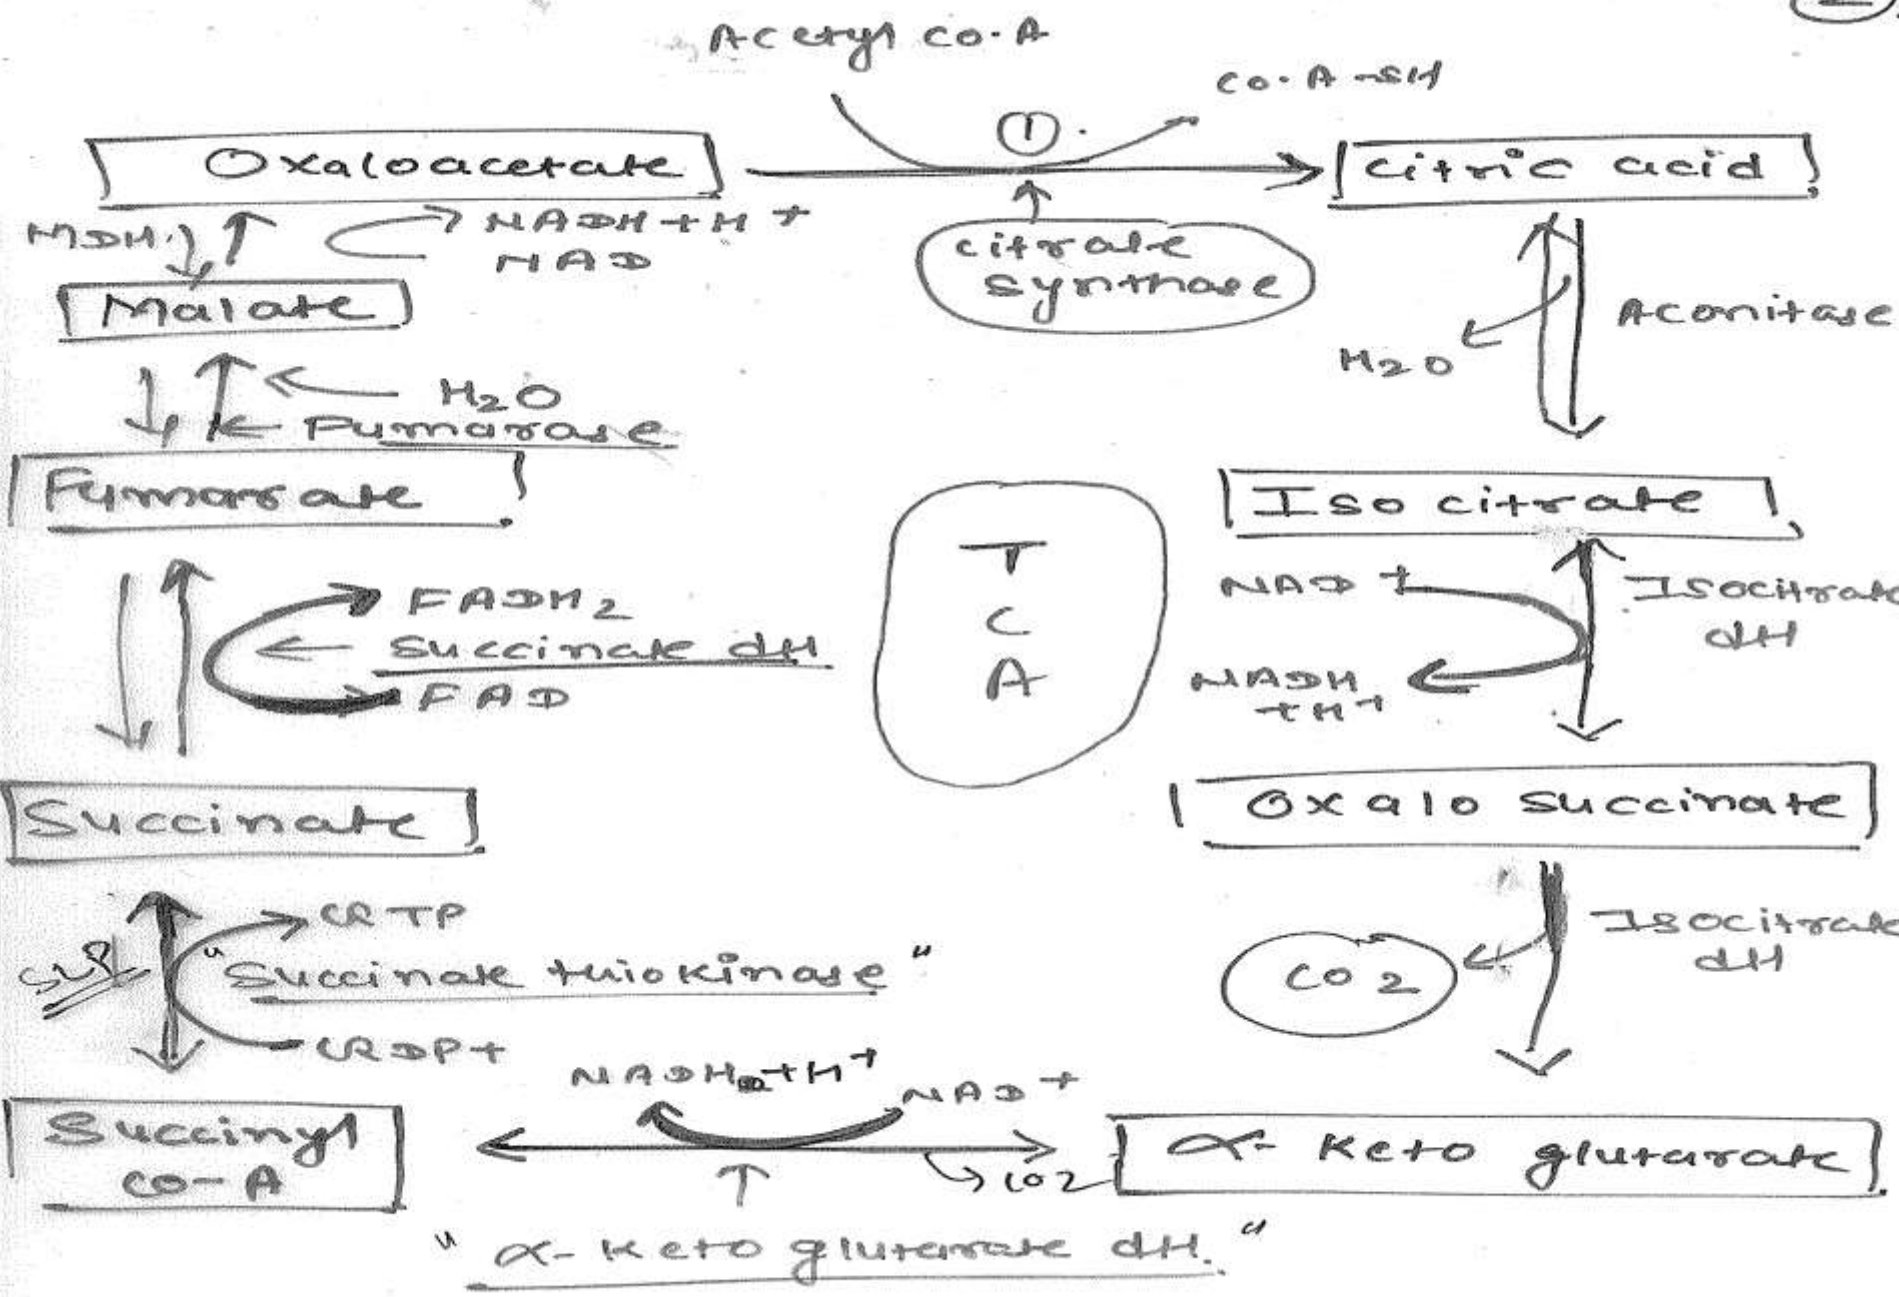 Acetyl co-A
co-A-SH
①
Oxaloacetate
citric acid
MDH
NADH+H+
NAD
citrate
synthase
Malate
Aconitase
H2O
H2O
Fumarase
Fumarate
Iso citrate
T
C
A
NAD+
Isocitrate
dH
FADH2
succinate dH
FAD
NADH
+H+
Succinate
Oxalo succinate
GTP
SLP
"Succinate thiokinase"
GDP+
Isocitrate
dH
CO2
NADH+H+
NAD+
Succinyl
co-A
CO2
α-Keto glutarate
"α-Keto glutarate dH."